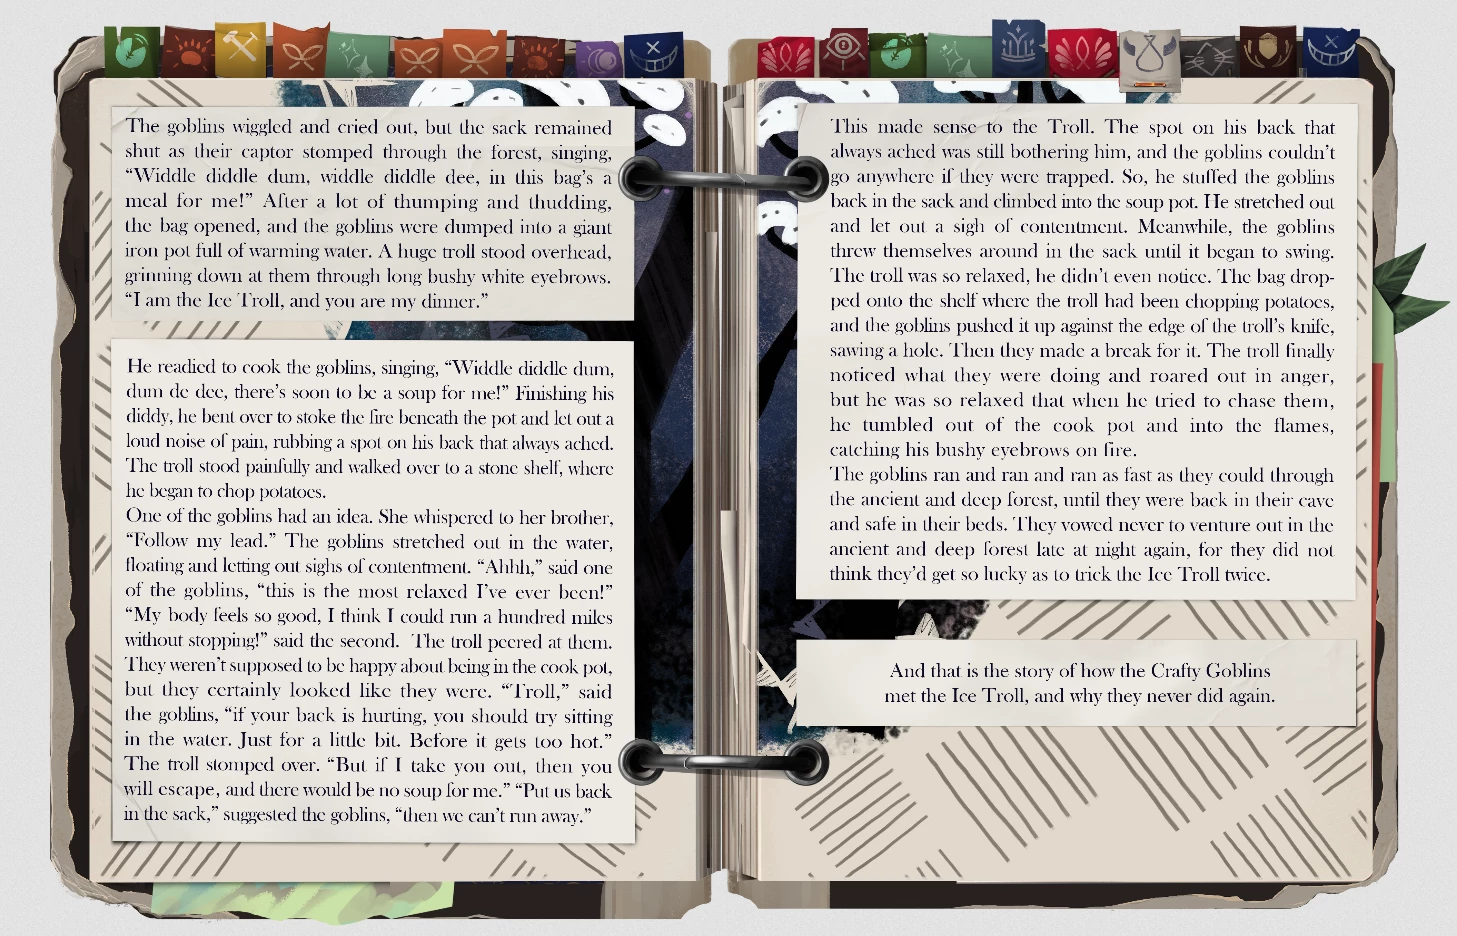 The goblins wiggled and cried out, but the sack remained
shut as their captor stomped through the forest, singing,
“Widdle diddle dum, widdle diddle dee, in this bag’s a
meal for me!” After a lot of thumping and thudding,
the bag opened, and the goblins were dumped into a giant
iron pot full of warming water. A huge troll stood overhead,
grinning down at them through long bushy white eyebrows.
“I am the Ice Troll, and you are my dinner.”
He readied to cook the goblins, singing, “Widdle diddle dum,
dum de dee, there’s soon to be a soup for me!” Finishing his
diddy, he bent over to stoke the fire beneath the pot and let out a
loud noise of pain, rubbing a spot on his back that always ached.
The troll stood painfully and walked over to a stone shelf, where
he began to chop potatoes.
One of the goblins had an idea. She whispered to her brother,
“Follow my lead.” The goblins stretched out in the water,
floating and letting out sighs of contentment. “Ahhh,” said one
of the goblins, “this is the most relaxed I’ve ever been!”
“My body feels so good, I think I could run a hundred miles
without stopping!” said the second. The troll peered at them.
They weren’t supposed to be happy about being in the cook pot,
but they certainly looked like they were. “Troll,” said
the goblins, “if your back is hurting, you should try sitting
in the water. Just for a little bit. Before it gets too hot.”
The troll stomped over. “But if I take you out, then you
will escape, and there would be no soup for me.” “Put us back
in the sack,” suggested the goblins, “then we can’t run away.”
This made sense to the Troll. The spot on his back that
always ached was still bothering him, and the goblins couldn’t
go anywhere if they were trapped. So, he stuffed the goblins
back in the sack and climbed into the soup pot. He stretched out
and let out a sigh of contentment. Meanwhile, the goblins
threw themselves around in the sack until it began to swing.
The troll was so relaxed, he didn’t even notice. The bag drop-
ped onto the shelf where the troll had been chopping potatoes,
and the goblins pushed it up against the edge of the troll’s knife,
sawing a hole. Then they made a break for it. The troll finally
noticed what they were doing and roared out in anger,
but he was so relaxed that when he tried to chase them,
he tumbled out of the cook pot and into the flames,
catching his bushy eyebrows on fire.
The goblins ran and ran and ran as fast as they could through
the ancient and deep forest, until they were back in their cave
and safe in their beds. They vowed never to venture out in the
ancient and deep forest late at night again, for they did not
think they’d get so lucky as to trick the Ice Troll twice.
And that is the story of how the Crafty Goblins
met the Ice Troll, and why they never did again.